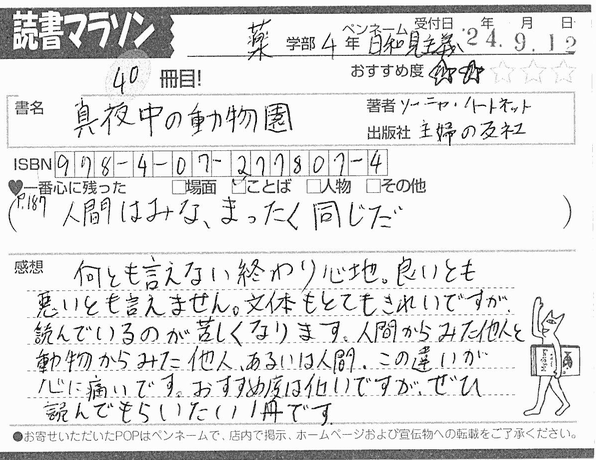 読書マラソン
薬 学部 4年 ペンネーム 日和見主義 受付日 '24.9.12 年 月 日
40 冊目!
おすすめ度 ★★☆☆☆
書名 真夜中の動物園
著者 ソーニャ・ハートネット
出版社 主婦の友社
ISBN 978-4-07-277807-4
♥一番心に残った □場面 ☑ことば □人物 □その他
(P.187 人間はみな、まったく同じだ)
感想 何とも言えない終わり心地。良いとも
悪いとも言えません。文体もとてもきれいですが、
読んでいるのが苦しくなります。人間からみた他人と
動物からみた他人、あるいは人間、この違いが
心に痛いです。おすすめ度は低いですが、ぜひ
読んでもらいたい1冊です
●お寄せいただいたPOPはペンネームで、店内で掲示、ホームページおよび宣伝物への転載をご了承ください。